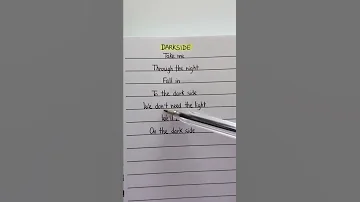 DARKSIDE
Take me
Through the night
Fall in
To the dark side
We don't need the light
We'll
On the dark side